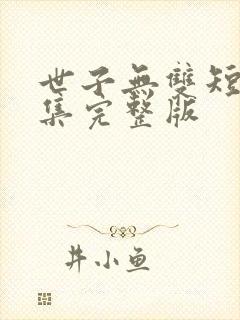 世子無雙短
集完整版
井小鱼